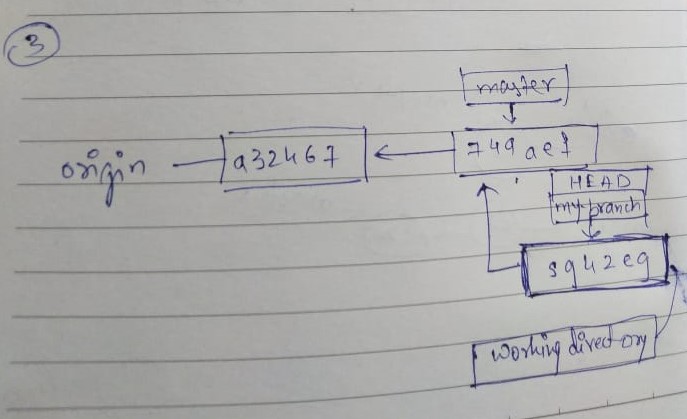 3
master
origin
a32467
749ae7
HEAD
my-branch
sg42eg
working directory